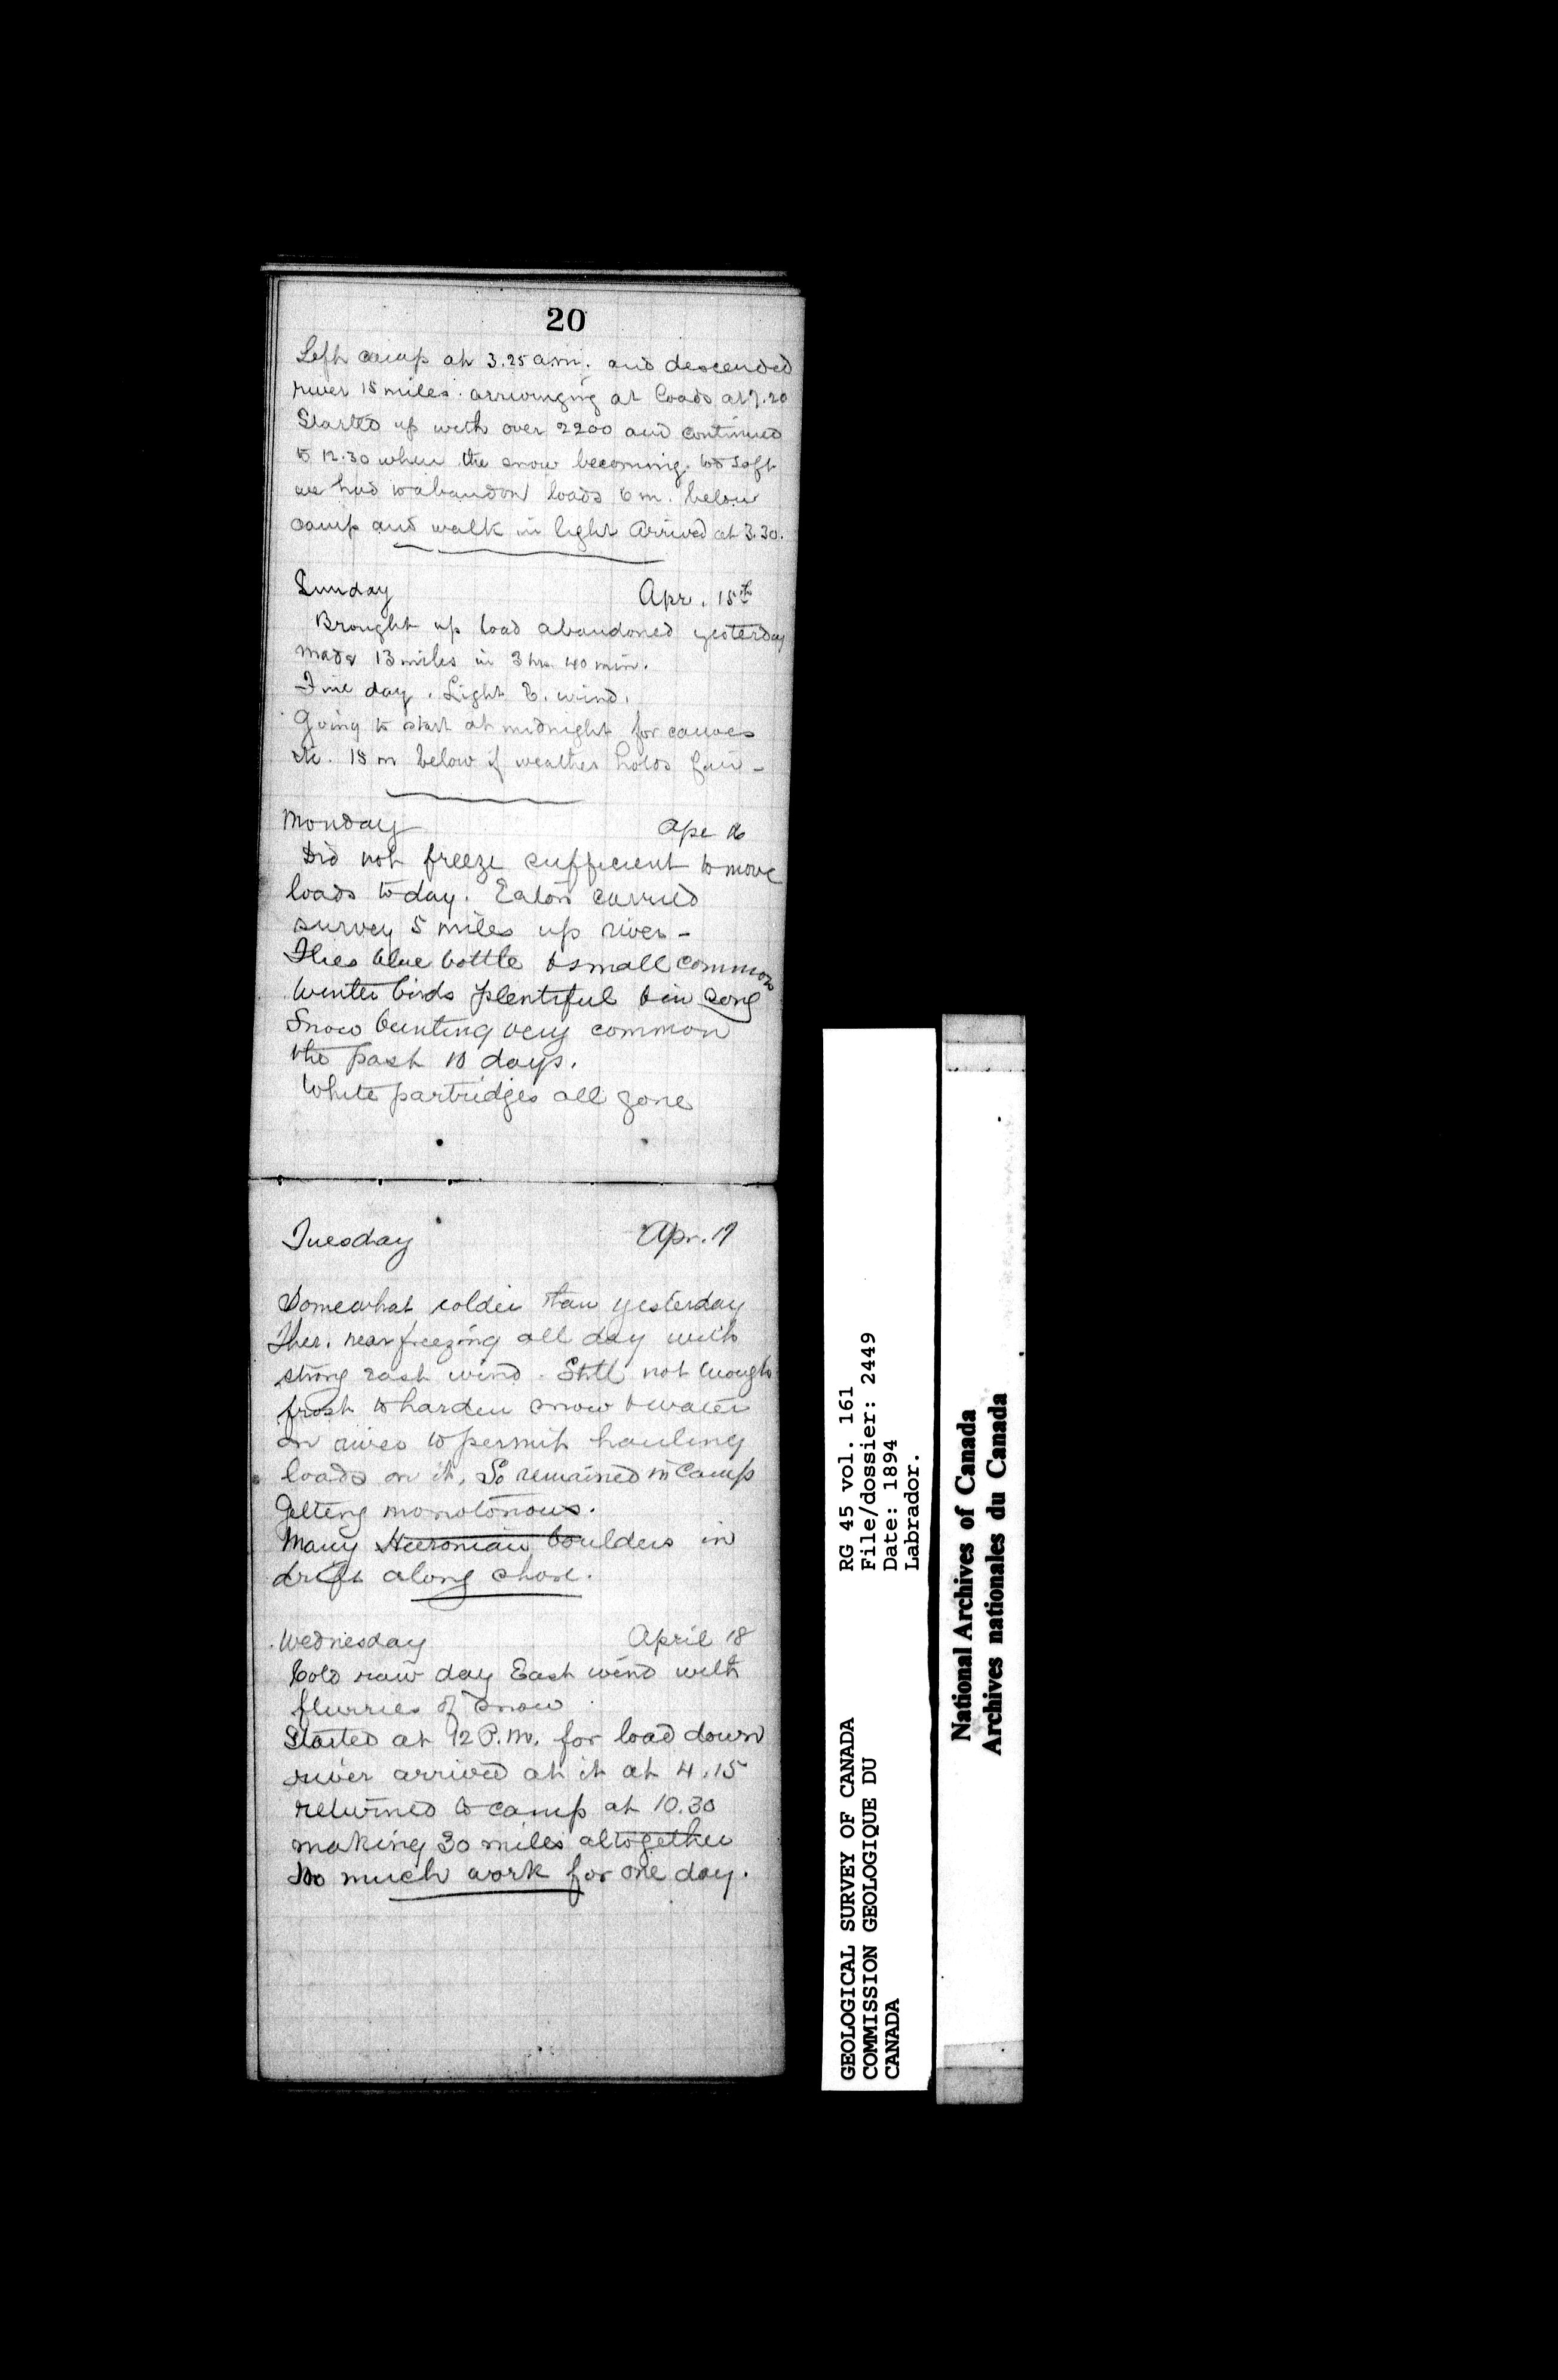 20
Left camp at 3.25 a.m. and descended
river 15 miles. arrivinging at loads at 7.20
Started up with over 2200 and continued
to 12.30 when the snow becoming too soft
we had to abandon loads 6 m. below
camp and walk in light Arrived at 3.30.
Sunday Apr. 15th
Brought up load abandoned yesterday
made 13 miles in 3 hrs 40 min.
Fine day. Light E. wind.
Going to start at midnight for canoes
etc. 15 m below if weather holds fair -
Monday Apr 16
Did not freeze sufficient to move
loads today. Eaton carried
survey 5 miles up river -
Flies blue bottle & small common
Winter birds plentiful & in song
Snow bunting very common
the past 10 days.
White partridges all gone
Tuesday Apr. 17
Somewhat colder than yesterday
Ther. near freezing all day with
strong east wind. Still not enough
frost to harden snow & water
on river to permit hauling
loads on it. So remained in camp
Getting monotonous.
Many Huronian boulders in
drift along shore.
Wednesday April 18
Cold raw day East wind with
flurries of snow
Started at 12 P.M. for load down
river arrived at it at 4.15
returned to camp at 10.30
making 30 miles altogether
Too much work for one day.
GEOLOGICAL SURVEY OF CANADA RG 45 vol. 161
COMMISSION GEOLOGIQUE DU File/dossier: 2449
CANADA Date: 1894
Labrador.
National Archives of Canada
Archives nationales du Canada